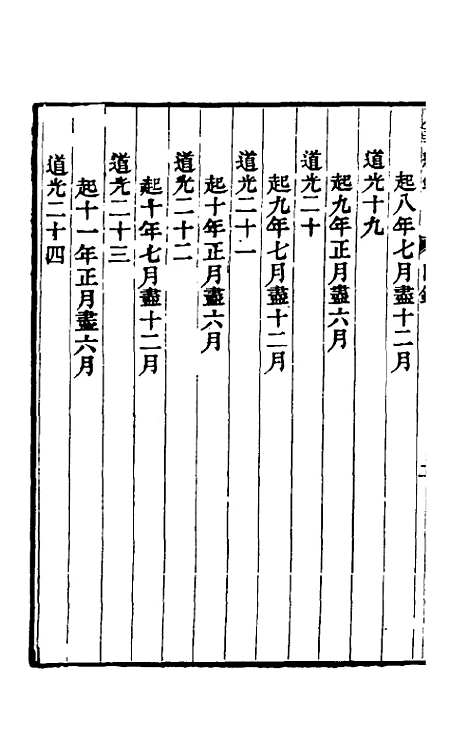 起八年七月盡十二月
道光十九
起九年正月盡六月
道光二十
起九年七月盡十二月
道光二十一
起十年正月盡六月
道光二十二
起十年七月盡十二月
道光二十三
起十一年正月盡六月
道光二十四